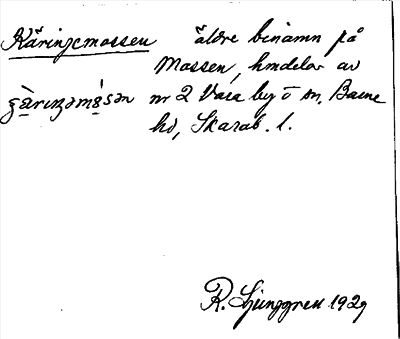 Käringemossen äldre binamn på
Mossen, hmdelar av
nr 2 Vara by o sn, Barne
hd, Skarab. l.
R. Ljunggren 1929